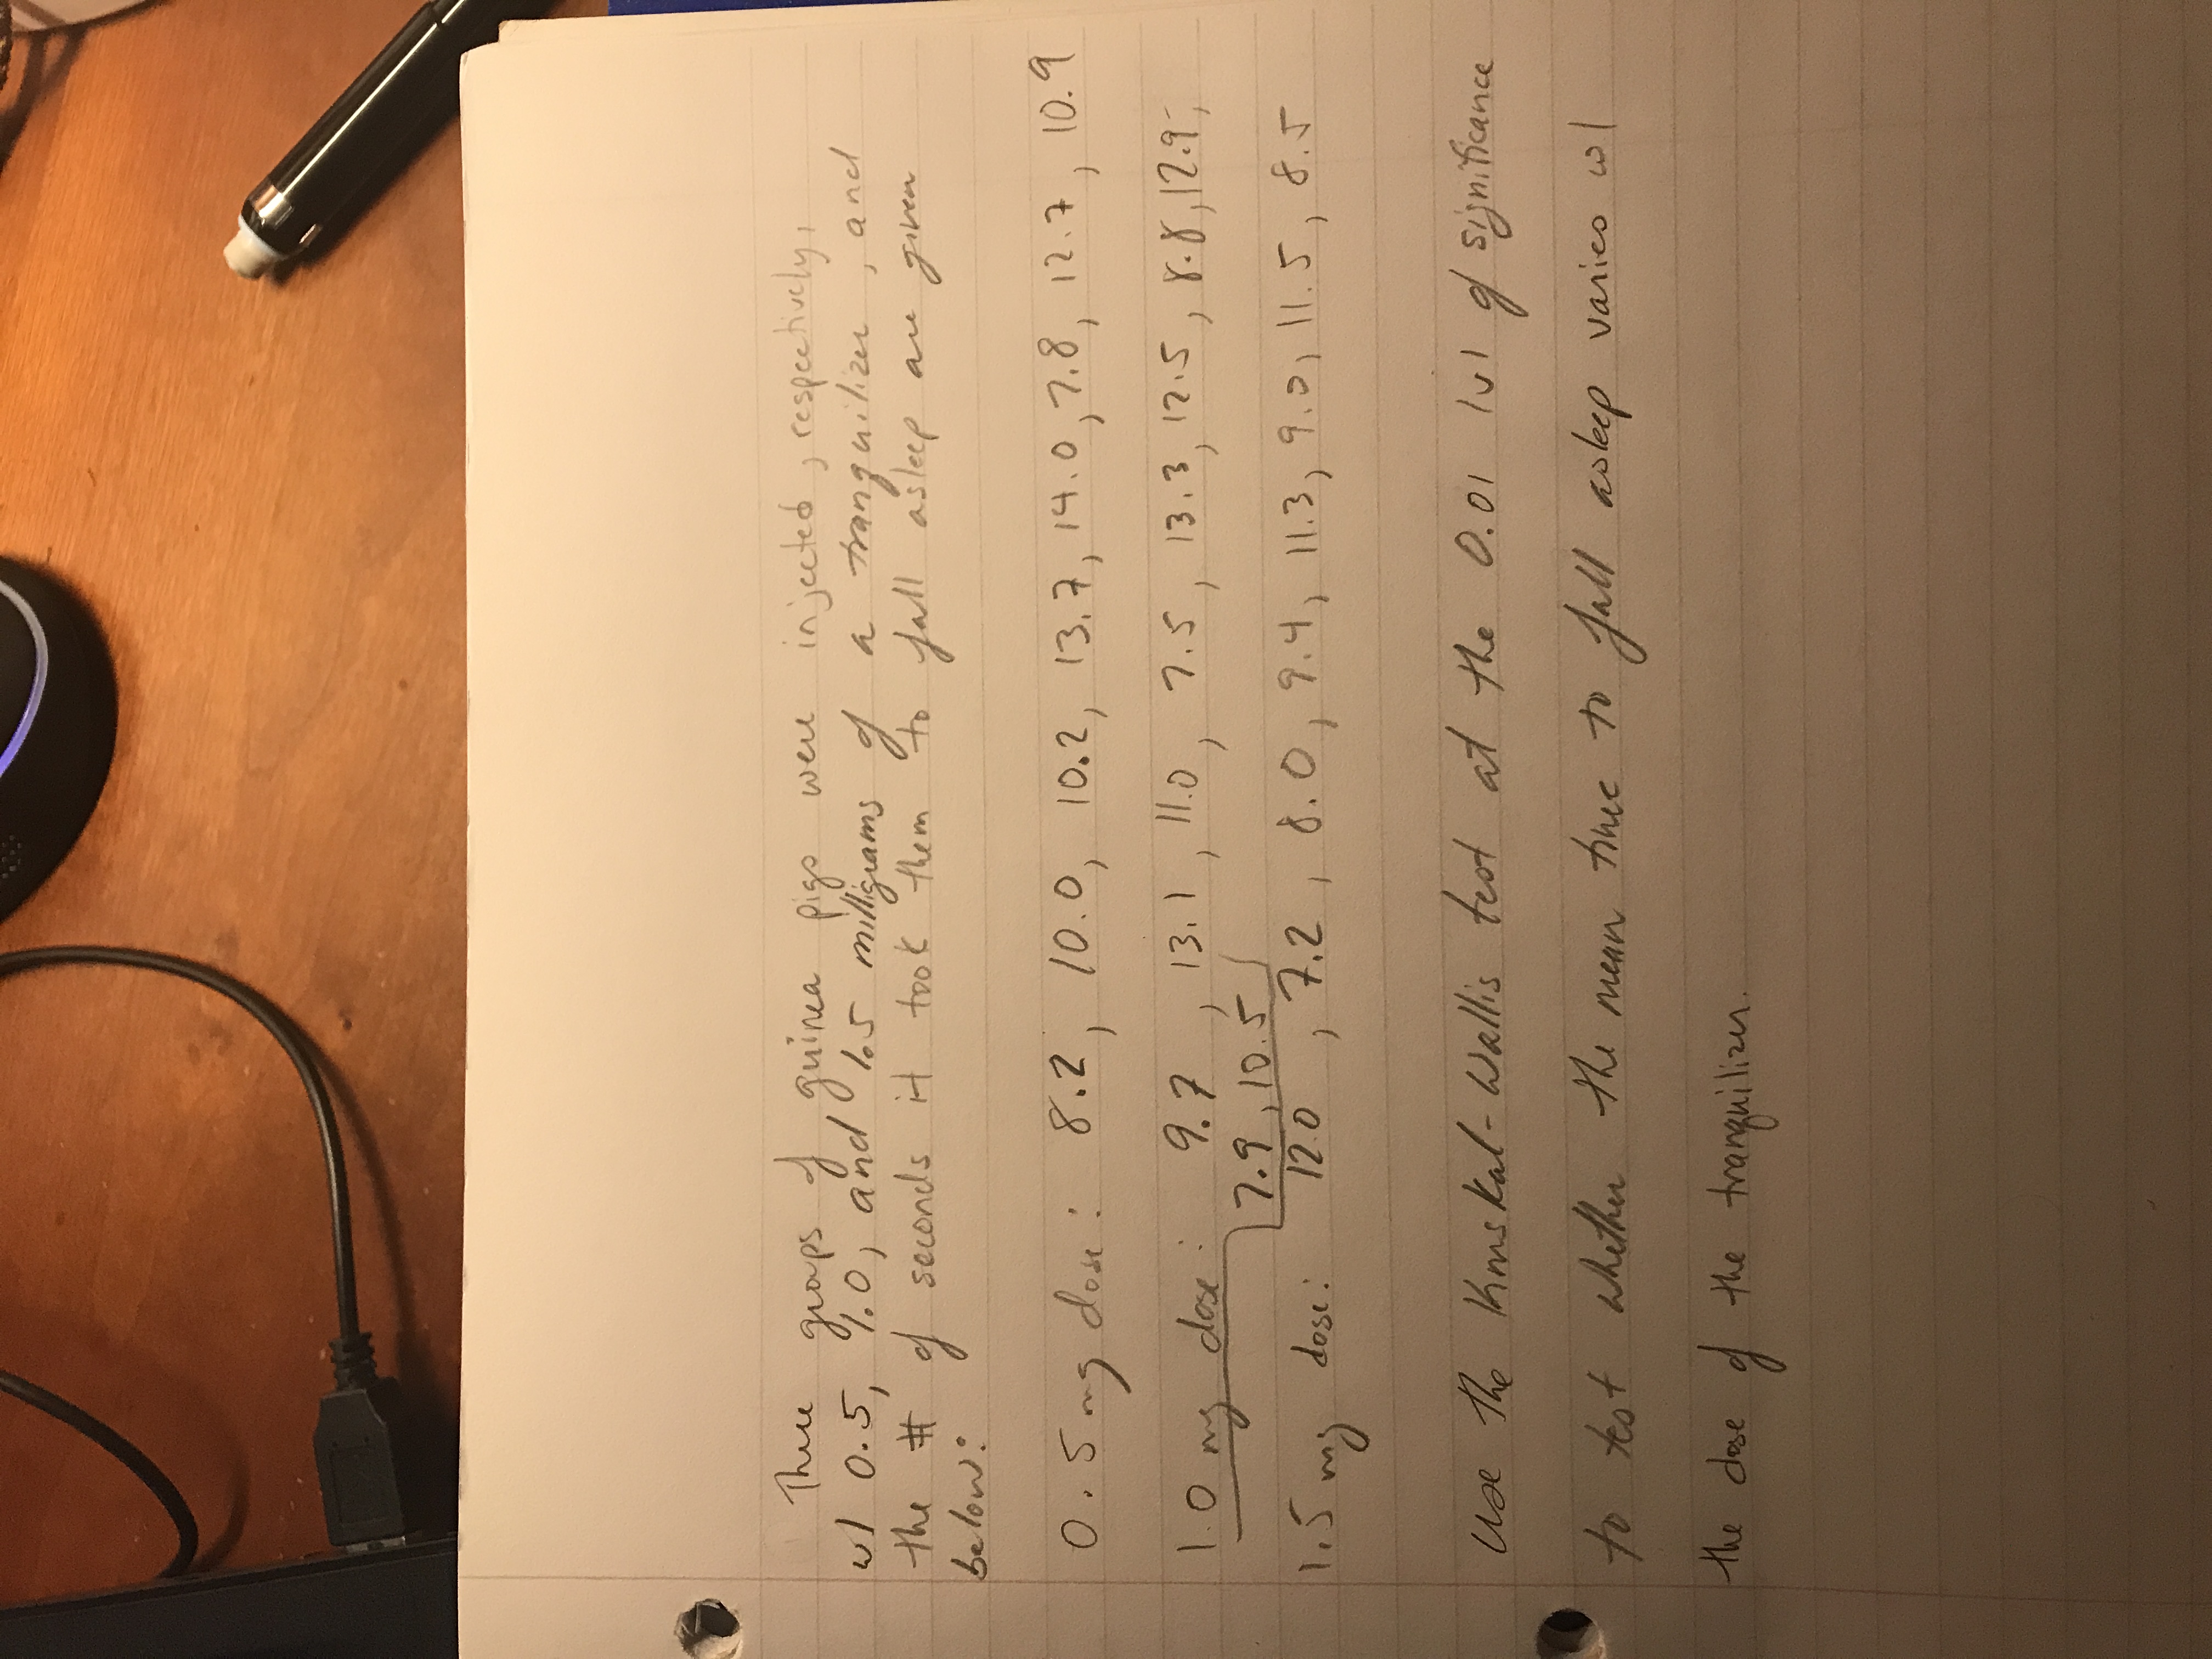 Three groups of guinea pigs were injected, respectively,
w/ 0.5, 1.0, and 1.5 milligrams of a tranquilizer, and
the # of seconds it took them to fall asleep are given
below:
0.5 mg dose: 8.2, 10.0, 10.2, 13.7, 14.0, 7.8, 12.7, 10.9
1.0 mg dose: 9.7, 13.1, 11.0, 7.5, 13.3, 12.5, 8.8, 12.9,
7.9, 10.5
1.5 mg dose: 12.0, 7.2, 8.0, 9.4, 11.3, 9.0, 11.5, 8.5
Use the Kruskal-Wallis test at the 0.01 lvl of significance
to test whether the mean time to fall asleep varies w/
the dose of the tranquilizer.